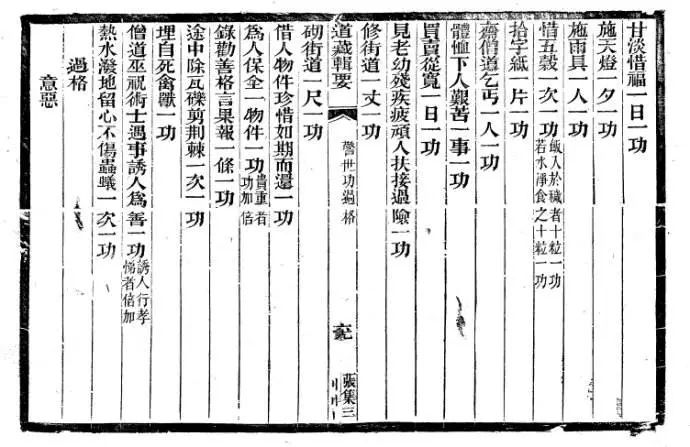 甘淡惜福一日一功
施天燈一夕一功
施雨具一人一功
惜五穀一次一功飯入於穢者十粒一功若水淨食之十粒一功
拾字紙一片一功
齋僧道乞丐一人一功
體恤下人艱苦一事一功
買賣從寬一日一功
見老幼殘疾疲頑人扶接過險一功
修街道一丈一功
道藏輯要 警世功過格 張集三
砌街道一尺一功
借人物件珍惜如期而還一功
爲人保全一物件一功貴重者功加倍
錄勸善格言果報一條一功
途中除瓦礫剪荊棘一次一功
埋自死禽獸一功
僧道巫祝術士遇事誘人爲善一功誘人行孝悌者倍加
熱水潑地留心不傷蟲蟻一次一功
過格
意惡